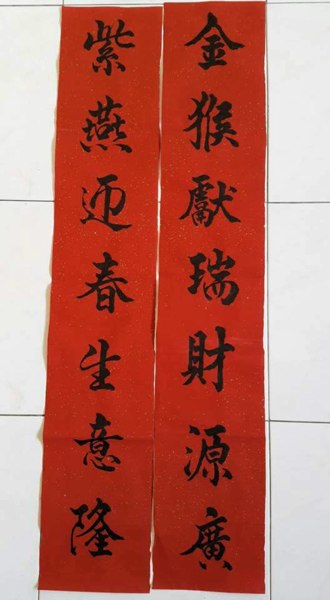 金猴獻瑞財源廣
紫燕迎春生意隆